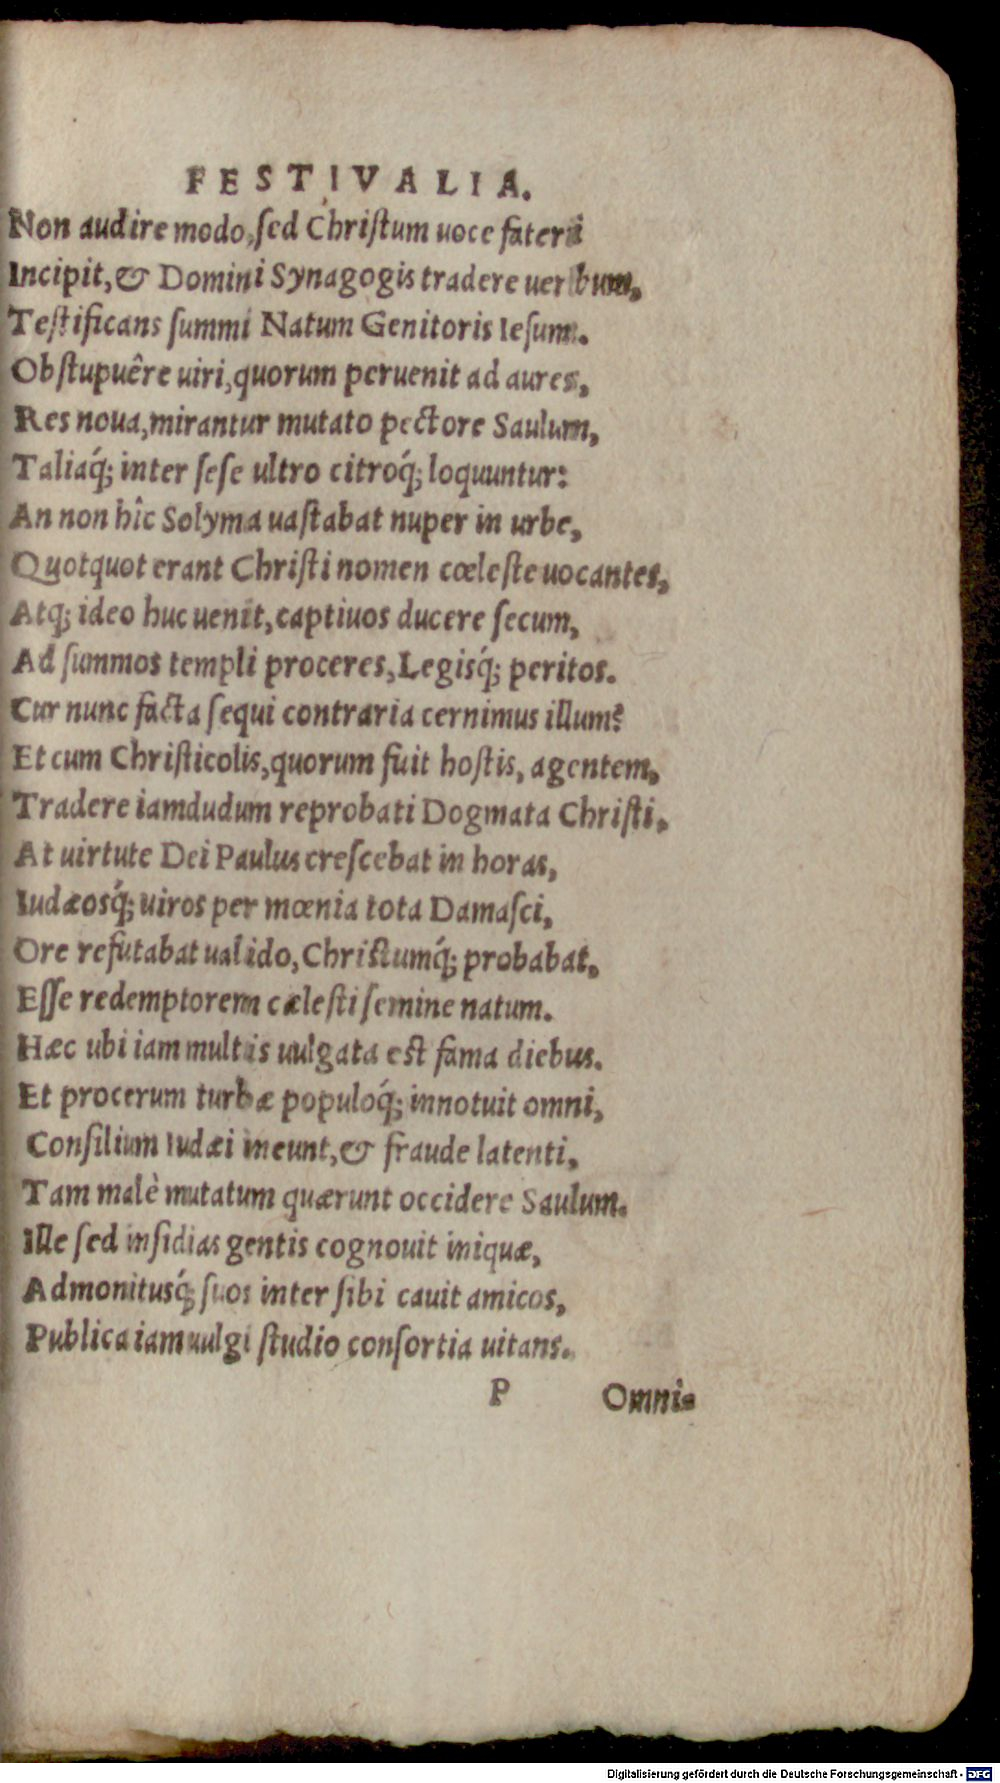 FESTIVALIA.
Non audire modo, sed Christum uoce fateri
Incipit, & Domini Synagogis tradere uerbum,
Testificans summi Natum Genitoris Iesum.
Obstupuêre uiri, quorum peruenit ad aures,
Res noua, mirantur mutato pectore Saulum,
Taliaq́; inter sese ultro citroq́; loquuntur:
An non hîc Solyma uastabat nuper in urbe,
Quotquot erant Christi nomen cœleste uocantes,
Atq; ideo huc uenit, captiuos ducere secum,
Ad summos templi proceres, Legisq́; peritos.
Cur nunc facta sequi contraria cernimus illum?
Et cum Christicolis, quorum fuit hostis, agentem,
Tradere iamdudum reprobati Dogmata Christi,
At uirtute Dei Paulus crescebat in horas,
Iudæosq́; uiros per mœnia tota Damasci,
Ore refutabat ualido, Christumq́; probabat,
Esse redemptorem cælesti semine natum.
Hæc ubi iam multis uulgata est fama diebus.
Et procerum turbæ populoq́; innotuit omni,
Consilium Iudæi ineunt, & fraude latenti,
Tam malè mutatum quærunt occidere Saulum.
Ille sed insidias gentis cognouit iniquæ,
Admonitusq́; suos inter sibi cauit amicos,
Publica iam uulgi studio consortia uitans.
P Omni-
Digitalisierung gefördert durch die Deutsche Forschungsgemeinschaft - DFG